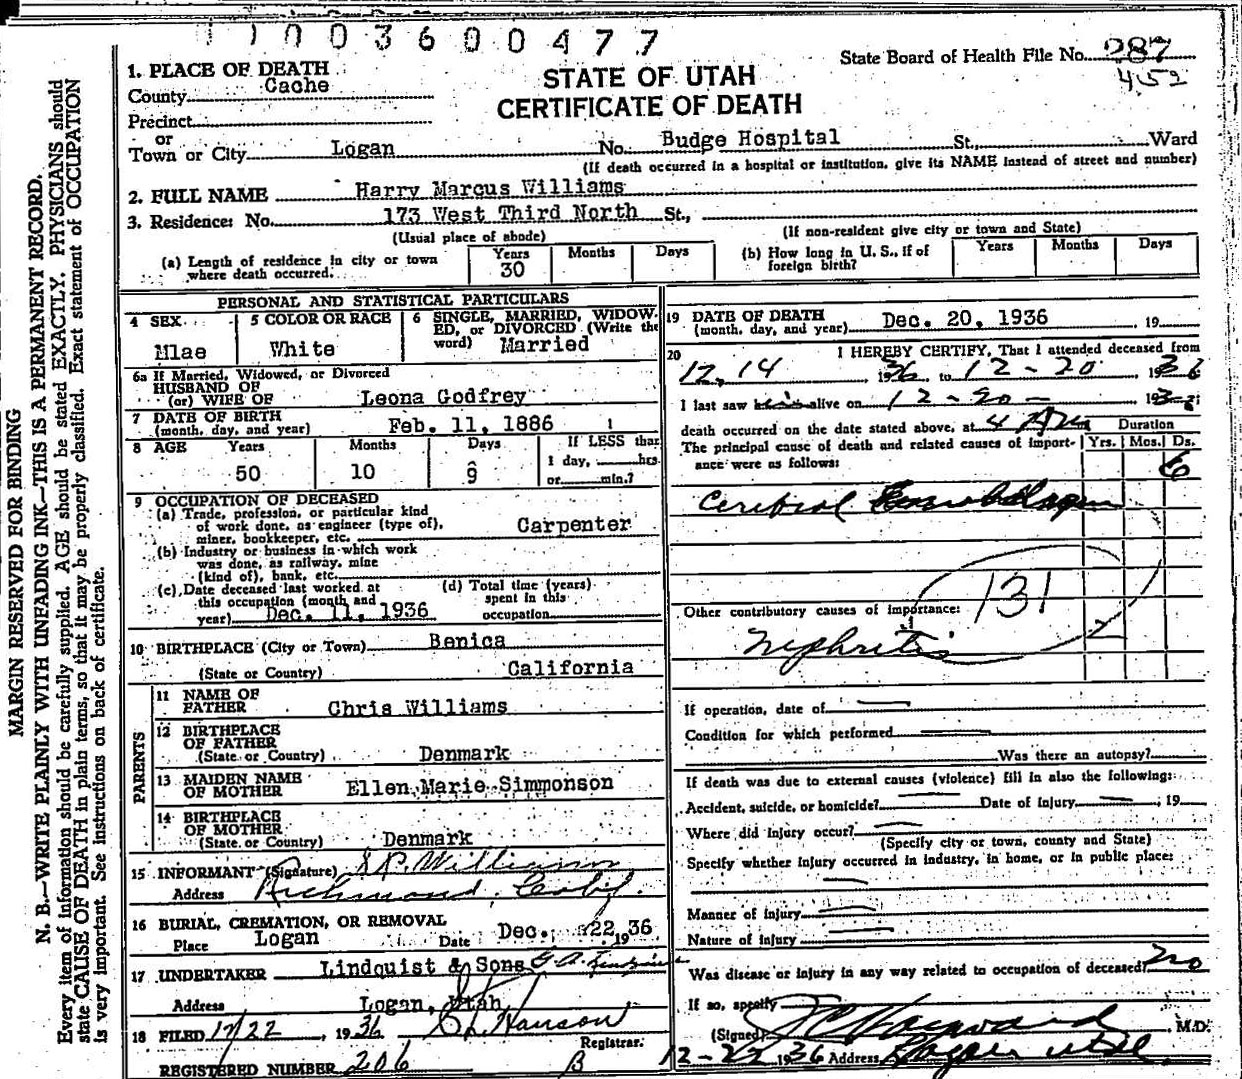 1 1 0 0 3 6 0 0 4 7 7
State Board of Health File No. 287
452
STATE OF UTAH
CERTIFICATE OF DEATH
1. PLACE OF DEATH
County Cache
Precinct
or
Town or City Logan No. Budge Hospital St., Ward
(If death occurred in a hospital or institution, give its NAME instead of street and number)
2. FULL NAME Harry Marcus Williams
3. Residence: No. 173 West Third North St.,
(Usual place of abode) (If non-resident give city or town and State)
(a) Length of residence in city or town where death occurred. Years 30 Months Days
(b) How long in U. S., if of foreign birth? Years Months Days
PERSONAL AND STATISTICAL PARTICULARS
4 SEX Mlae
5 COLOR OR RACE White
6 SINGLE, MARRIED, WIDOWED, or DIVORCED (Write the word) Married
6a If Married, Widowed, or Divorced
HUSBAND OF
(or) WIFE OF Leona Godfrey
7 DATE OF BIRTH
(month, day, and year) Feb. 11, 1886
8 AGE Years 50 Months 10 Days 9 If LESS than 1 day, hrs or min.?
9 OCCUPATION OF DECEASED
(a) Trade, profession, or particular kind of work done, as engineer (type of), miner, bookkeeper, etc. Carpenter
(b) Industry or business in which work was done, as railway, mine (kind of), bank, etc.
(c) Date deceased last worked at this occupation (month and year) Dec. 11, 1936
(d) Total time (years) spent in this occupation
10 BIRTHPLACE (City or Town) Benica
(State or Country) California
PARENTS
11 NAME OF FATHER Chris Williams
12 BIRTHPLACE OF FATHER
(State or Country) Denmark
13 MAIDEN NAME OF MOTHER Ellen Marie Simmonson
14 BIRTHPLACE OF MOTHER
(State or Country) Denmark
15 INFORMANT (Signature) S P. Williams
Address Richmond, Calif.
16 BURIAL, CREMATION, OR REMOVAL
Place Logan Date Dec. 22, 1936
17 UNDERTAKER Lindquist & Sons
Address Logan, Utah
18 FILED 12/22, 1936 Hanson
Registrar.
REGISTERED NUMBER 206 B
19 DATE OF DEATH
(month, day, and year) Dec. 20, 1936, 19
20 I HEREBY CERTIFY, That I attended deceased from
12, 14 1936, to 12-20 1936
I last saw him alive on 12-20- 193
death occurred on the date stated above, at 4 AM
Duration
The principal cause of death and related causes of importance were as follows: Yrs. Mos. Ds.
6
Cerebral
Other contributory causes of importance: 131
Nephritis
If operation, date of
Condition for which performed
Was there an autopsy?
If death was due to external causes (violence) fill in also the following:
Accident, suicide, or homicide? Date of injury , 19
Where did injury occur?
(Specify city or town, county and State)
Specify whether injury occurred in industry, in home, or in public place:
Manner of injury
Nature of injury
Was disease or injury in any way related to occupation of deceased? no
If so, specify
(Signed) Hayward M.D.
12-22 1936 Address Logan Utah
MARGIN RESERVED FOR BINDING
N. B.—WRITE PLAINLY WITH UNFADING INK—THIS IS A PERMANENT RECORD.
Every item of information should be carefully supplied. AGE should be stated EXACTLY. PHYSICIANS should
state CAUSE OF DEATH in plain terms, so that it may be properly classified. Exact statement of OCCUPATION
is very important. See instructions on back of certificate.